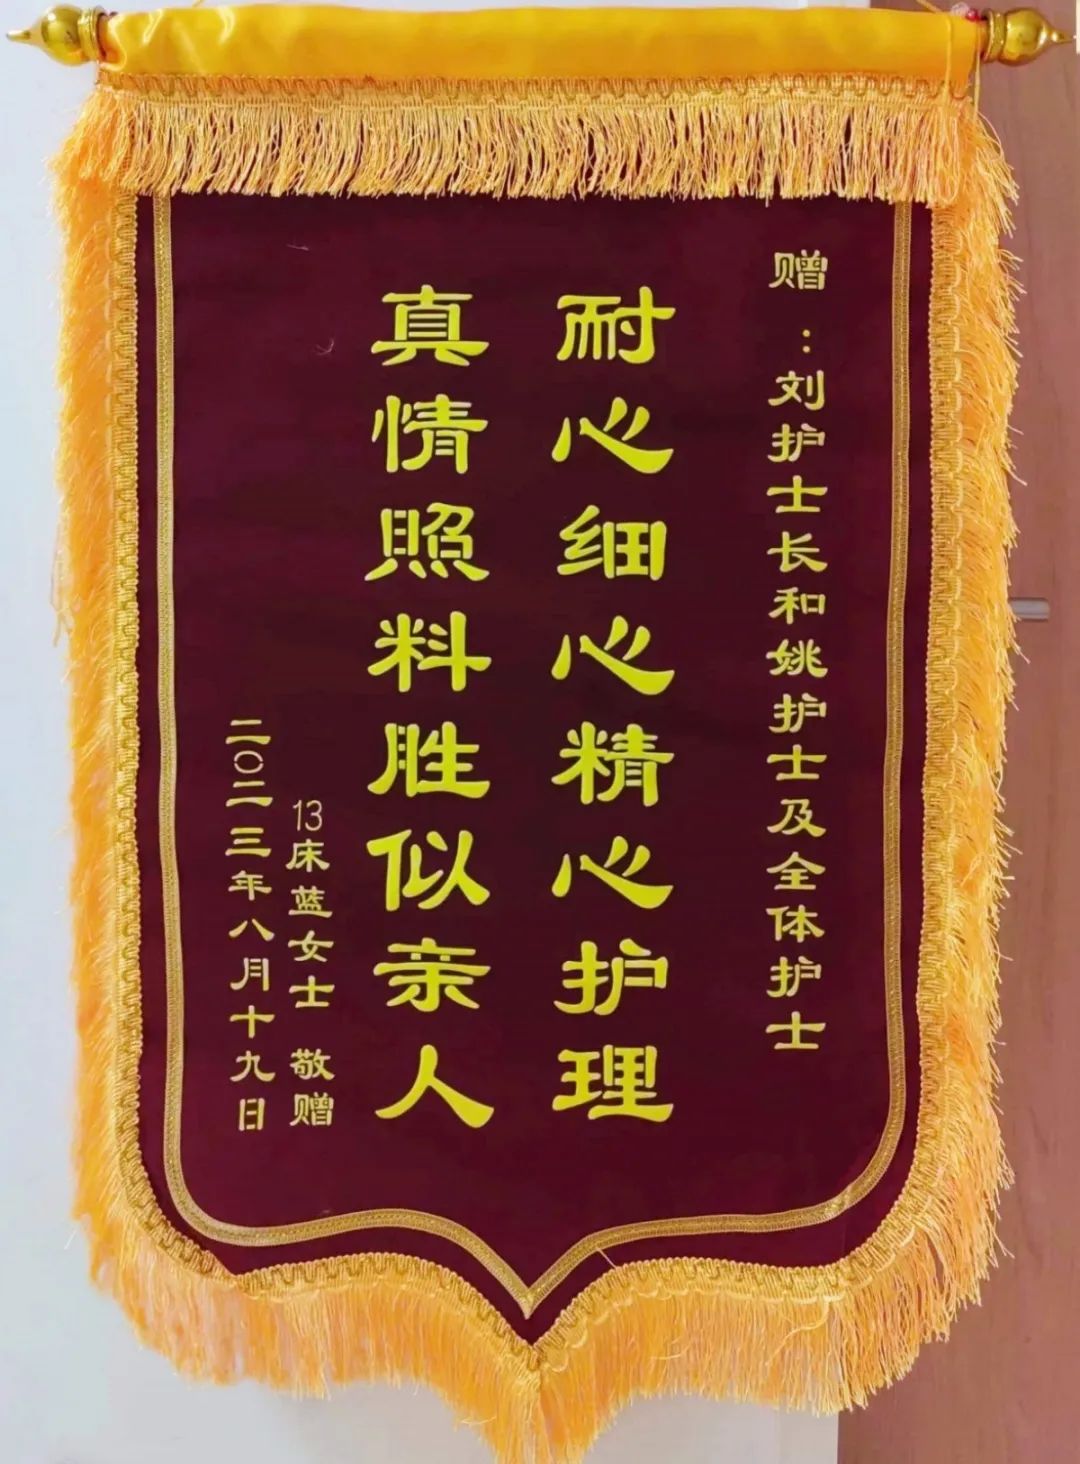 赠：刘护士长和姚护士及全体护士
耐心细心精心护理
真情照料胜似亲人
13床蓝女士 敬赠
二〇二三年八月十九日